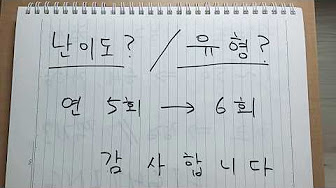 난이도? / 유형?
연 5회 → 6회
감사합니다